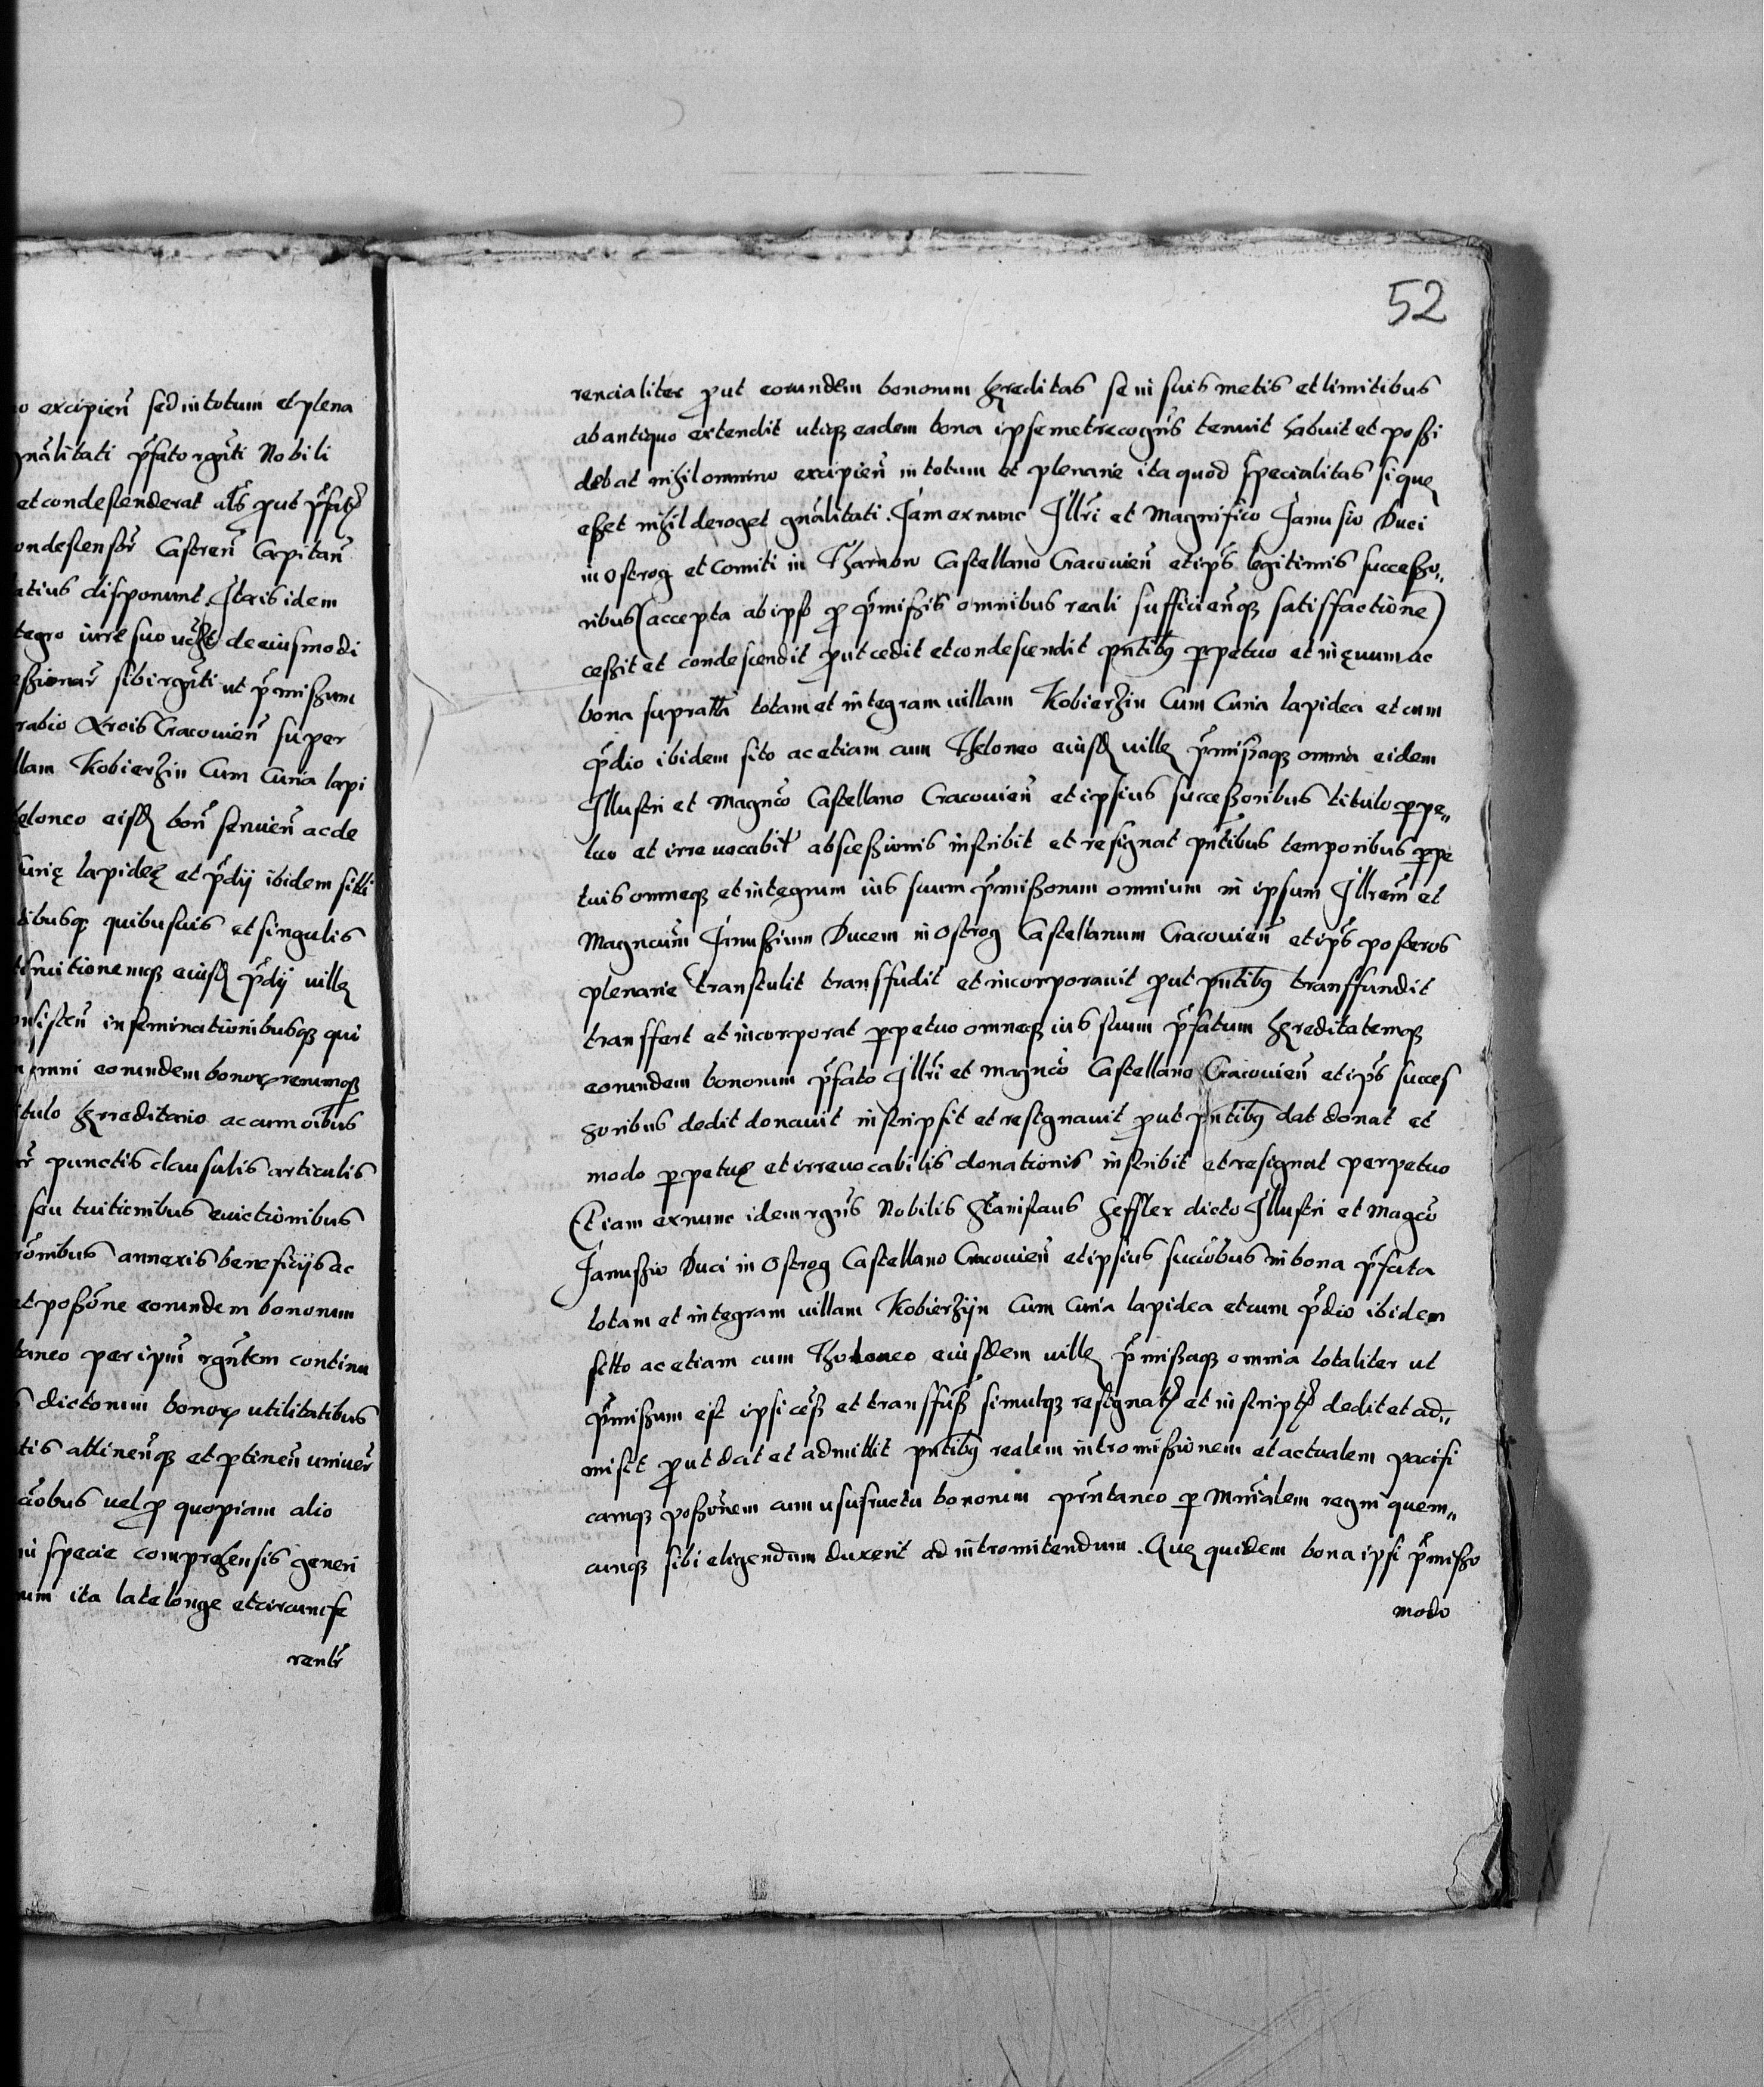 o excipien̄ sed in totum et plena
gnālitati p̄fato rgn̄ti Nobili
et condescenderat alʼs ꝓut p̄fatꝭ
condescensʼr Castren̄ Capitan̄
latius disponunt. Itaꝗ is idem
tegro iure suo de eiusmodi
sibi rgn̄ti ut p̄missum
Cracouien̄ super
llam Kobierzin Cum Curia lapi
eloneo eisdꝭ bon̄ seruien̄ ac de
urię lapideę et p̄dij ibidem sitti
dibusqꝫ quibusuis et singulis
eiusdꝭ p̄dij villę
in seminationibusqꝫ qui
omni eorundem bonoꝝ rerumqꝫ
itulo hęreditario ac cum oībus
punctis clausulis articulis
seu tuitionibus euictionibus
annexis beneficijs ac
et possōne eorundem bonorum
taneo per ipm̄ rgn̄tem continu
dictorum bonoꝝ utilitatibus
tis attinen̄qꝫ et ꝑtinen̄ uniuer̄
uel ꝓ quopiam alio
in specie comprehensis generi
um ita late longe et circumfe
renlr̄
52
rencialiter ꝓut eorundem bonorum hęreditas se in suis metis et limitibus
ab antiquo extendit utiqꝫ eadem bona ipsemet recogn̄s tenuit habuit et possi
debat nihil omnino excipien̄ in totum et plenarie ita quod specialitas si quę
esset nihil deroget gnālitati. Iam ex nunc Illrī et Magnifico Janusio Duci
in Ostrog et Comiti in Tharnow Castellano Cracouien̄ et ip̄s legitimis successo„
ribus (accepta ab ipso ꝓ p̄missis omnibus reali sufficien̄qꝫ satisfactione)
cessit et condescendit ꝓut cedit et condescendit pn̄tibꝰ ꝑpetuo et in ęuum ac
bona supratta totam et integram uillam Kobierzin Cum Curia lapidea et cum
p̄dio ibidem sito ac etiam cum Theloneo eiusdꝭ uillę p̄missaqꝫ omnia eidem
Illustri et Magncō Castellano Cracouien̄ et ipsius successoribus titulo ꝑpe„
tuo et irreuocabil̄ abscessionis inscribit et resignat pn̄tibus temporibus ꝑpe
tuis omneqꝫ et integrum ius suum p̄missorum omnium in ipsum Illrem̄ et
Magncum̄ Janussium Ducem in Ostrog Castellanum Cracouien̄ et ip̄s posteros
plenarie transtulit transffudit et incorporauit ꝓut pn̄tibꝰ transffundit
transffert et incorporat ꝑpetuo omneqꝫ ius suum p̄fatum hęreditatemqꝫ
eorundem bonorum p̄fato Illrī et magncō Castellano Cracouien̄ et ip̄s succes
soribus dedit donauit inscripsit et resignauit ꝓut pn̄tibꝰ dat donat et
modo ꝑpetuę et irreuocabilis donationis inscribit et resignat perpetuo
Etiam ex nunc idem rgn̄s Nobilis Stanislaus Heffler dicto Illustri et Magcō
Janussio Duci in Ostrog Castellano Cracouien̄ et ipsius succōbus in bona p̄fata
totam et integram uillam Kobierzijn Cum Curia lapidea et cum p̄dio ibidem
sitto ac etiam cum Theloneo eiusdem uillę p̄missaqꝫ omnia totaliter ut
p̄missum est ipsi cess̄ et transffus̄ simulqꝫ resignatꝭ et inscriptꝭ dedit et ad„
misit ꝓut dat et admittit pn̄tibꝰ realem intromissionem et actualem pacifi
camqꝫ possōnem cum usufructu bonorum prn̄taneo ꝑ Mnrālem regni quem„
cunqꝫ sibi eligendum duxerit ad intromitendum. Quę quidem bona ipsi p̄misso
modo